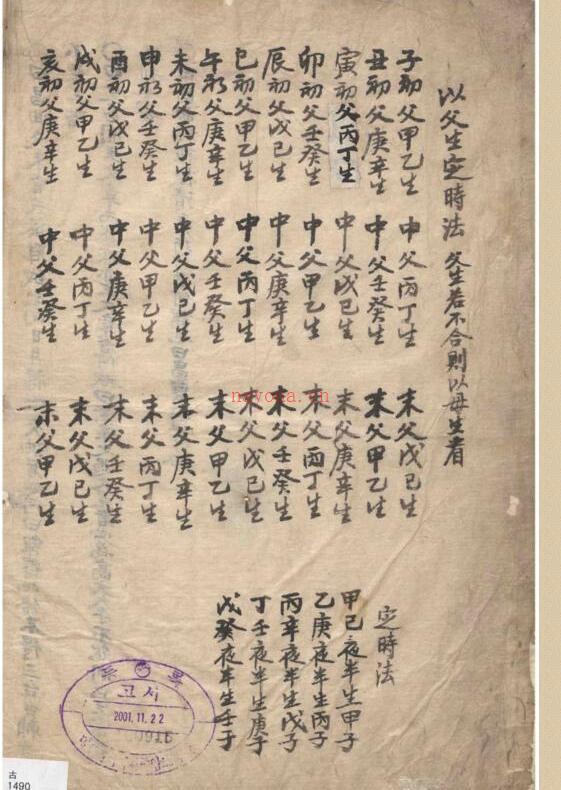 以父生定時法 父生若不合則以母生看
子初父甲乙生 中父丙丁生 末父戊己生
丑初父庚辛生 中父壬癸生 末父甲乙生
寅初父丙丁生 中父戊己生 末父庚辛生
卯初父壬癸生 中父甲乙生 末父丙丁生
辰初父戊己生 中父庚辛生 末父壬癸生
巳初父甲乙生 中父丙丁生 末父戊己生
午初父庚辛生 中父壬癸生 末父甲乙生
未初父丙丁生 中父戊己生 末父庚辛生
申初父壬癸生 中父甲乙生 末父丙丁生
酉初父戊己生 中父庚辛生 末父壬癸生
戌初父甲乙生 中父丙丁生 末父戊己生
亥初父庚辛生 中父壬癸生 末父甲乙生
定時法
甲己夜半生甲子
乙庚夜半生丙子
丙辛夜半生戊子
丁壬夜半生庚子
戊癸夜半生壬子
고서
2001.11.22
古
1490
nayona.cn